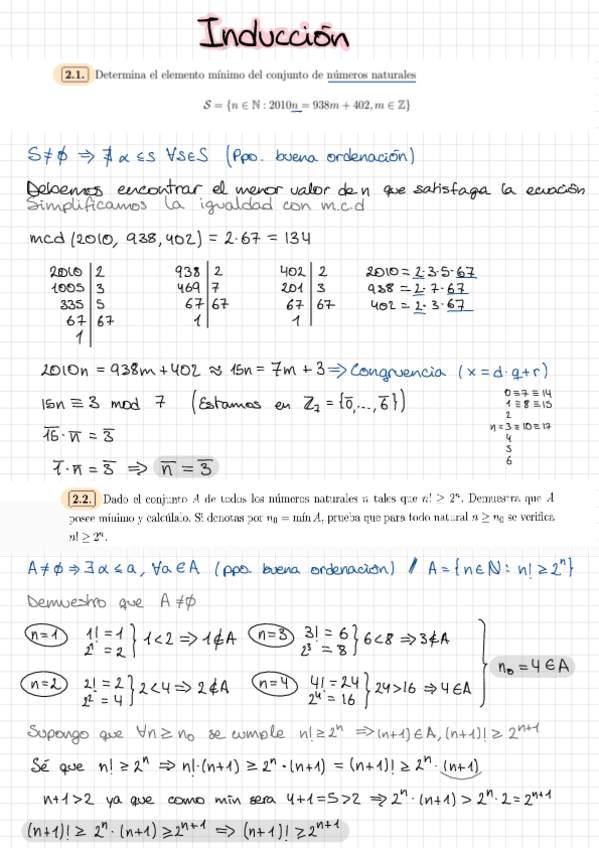 Inducción
2.1. Determina el elemento mínimo del conjunto de números naturales
S = {n ∈ N : 2010n = 938m + 402, m ∈ Z}
S≠∅ ⇒ ∄ α ≤ s ∀s∈S (Ppo. buena ordenación)
Debemos encontrar el menor valor de n que satisfaga la ecuación
Simplificamos la igualdad con m.c.d
mcd (2010, 938, 402) = 2·67 = 134
2010 | 2 938 | 2 402 | 2 2010 = 2·3·5·67
1005 | 3 469 | 7 201 | 3 938 = 2·7·67
335 | 5 67 | 67 67 | 67 402 = 2·3·67
67 | 67 1 | 1 |
1 |
2010n = 938m + 402 ≈ 15n = 7m + 3 ⇒ Congruencia (x = d·q+r)
15n ≡ 3 mod 7 (Estamos en Z₇ = {0̅,...,6̅})
0≡7≡14
1≡8≡15
2
n=3≡10≡17
4
5
6
1̅5̅·n̅ = 3̅
1̅·n̅ = 3̅ ⇒ n̅ = 3̅
2.2. Dado el conjunto A de todos los números naturales n tales que n! ≥ 2ⁿ. Demuestra que A
posee mínimo y calcúlalo. Si denotas por n₀ = mín A, prueba que para todo natural n ≥ n₀ se verifica
n! ≥ 2ⁿ.
A≠∅ ⇒ ∃ α ≤ a, ∀a∈A (ppo. buena ordenación) / A = {n∈N : n! ≥ 2ⁿ}
Demuestro que A≠∅
n=1 1! = 1 2¹ = 2 } 1<2 ⇒ 1∉A n=3 3! = 6 2³ = 8 } 6<8 ⇒ 3∉A
n=2 2! = 2 2² = 4 } 2<4 ⇒ 2∉A n=4 4! = 24 2⁴ = 16 } 24>16 ⇒ 4∈A } n₀ = 4∈A
Supongo que ∀n≥n₀ se cumple n! ≥ 2ⁿ ⇒ (n+1)∈A, (n+1)! ≥ 2ⁿ⁺¹
Sé que n! ≥ 2ⁿ ⇒ n!·(n+1) ≥ 2ⁿ·(n+1) = (n+1)! ≥ 2ⁿ·(n+1)
n+1>2 ya que como mín será 4+1=5>2 ⇒ 2ⁿ·(n+1) > 2ⁿ·2 = 2ⁿ⁺¹
(n+1)! ≥ 2ⁿ·(n+1) ≥ 2ⁿ⁺¹ ⇒ (n+1)! ≥ 2ⁿ⁺¹